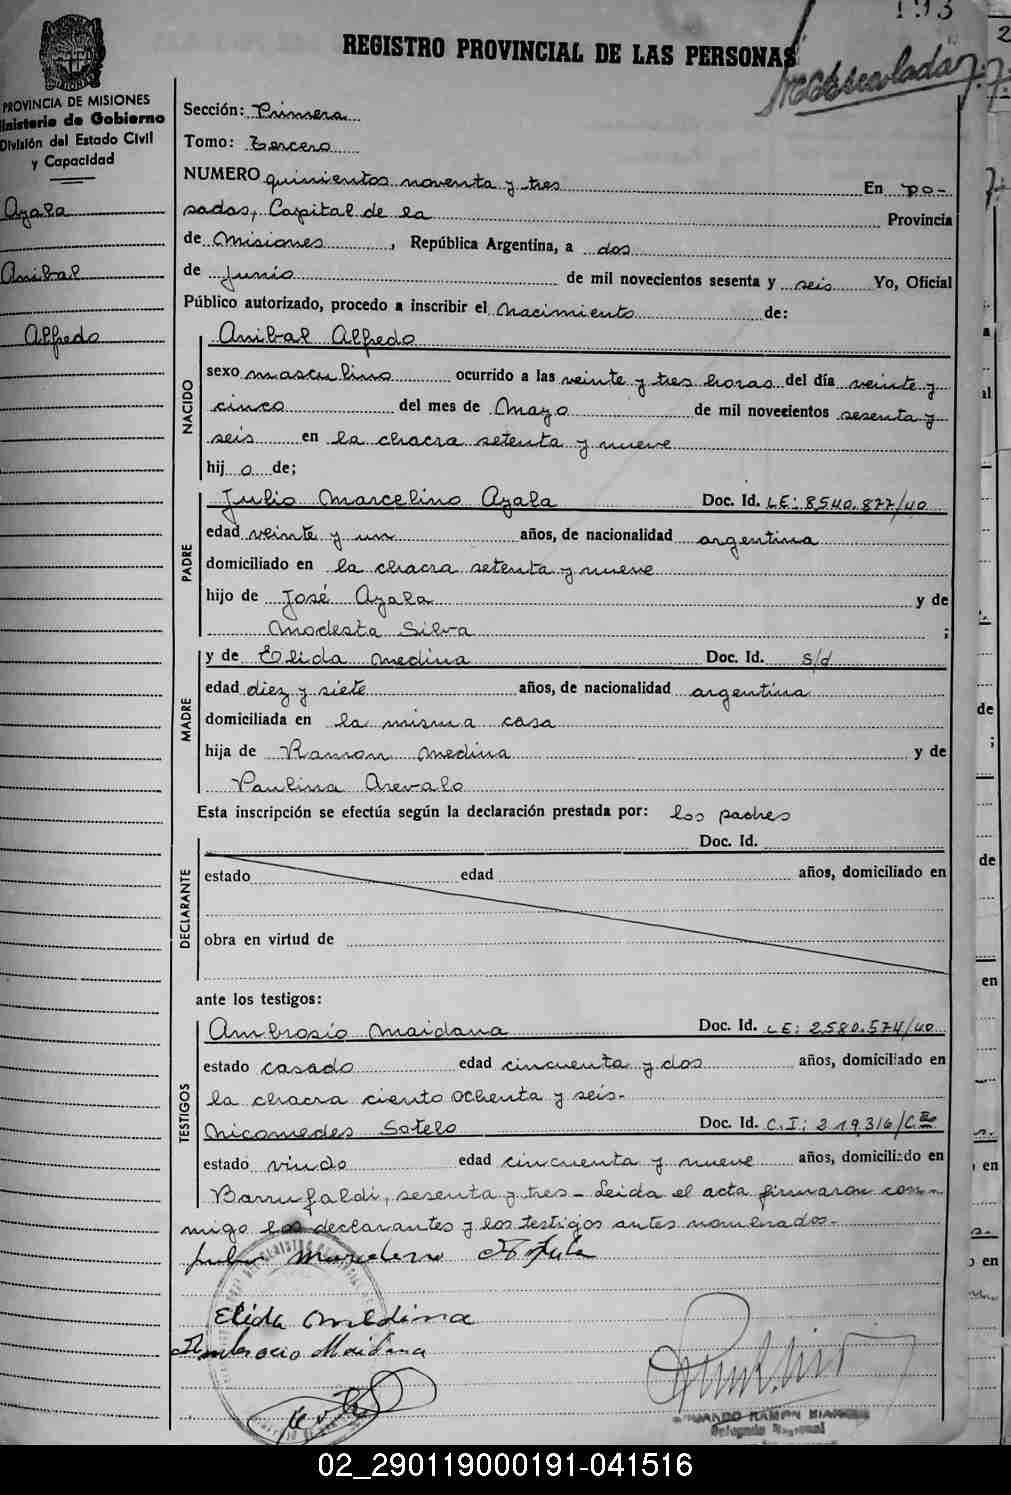 193
REGISTRO PROVINCIAL DE LAS PERSONAS
PROVINCIA DE MISIONES
Ministerio de Gobierno
División del Estado Civil
y Capacidad
Ayala
Anibal
Alfredo
Sección: Primera
Tomo: Tercero
NUMERO quinientos noventa y tres En Po-
sadas, Capital de la Provincia
de Misiones, República Argentina, a dos
de Junio de mil novecientos sesenta y seis Yo, Oficial
Público autorizado, procedo a inscribir el nacimiento de:
NACIDO
Anibal Alfredo
sexo masculino ocurrido a las veinte y tres horas del día veinte y
cinco del mes de Mayo de mil novecientos sesenta y
seis en la chacra setenta y nueve
hij o de;
PADRE
Julio Marcelino Ayala Doc. Id. LE: 8540.877/40
edad veinte y un años, de nacionalidad argentina
domiciliado en la chacra setenta y nueve
hijo de José Ayala y de
Modesta Silva ;
MADRE
y de Elida Medina Doc. Id. s/d
edad diez y siete años, de nacionalidad argentina
domiciliada en la misma casa
hija de Ramon Medina y de
Paulina Arevalo
Esta inscripción se efectúa según la declaración prestada por: los padres
DECLARANTE
Doc. Id.
estado edad años, domiciliado en
obra en virtud de
ante los testigos:
TESTIGOS
Ambrosio Maidana Doc. Id. LE: 2580.574/40
estado casado edad cincuenta y dos años, domiciliado en
la chacra ciento ochenta y seis.-
Nicomedes Sotelo Doc. Id. C.I: 219.316/
estado viudo edad cincuenta y nueve años, domiciliado en
Barrufaldi, sesenta y tres - Leida el acta firmaron con-
migo los declarantes y los testigos antes nombrados.-
Julio Marcelino Ayala
Elida Medina
Ambrocio Maidana
RAMON
Delegado
02_290119000191-041516